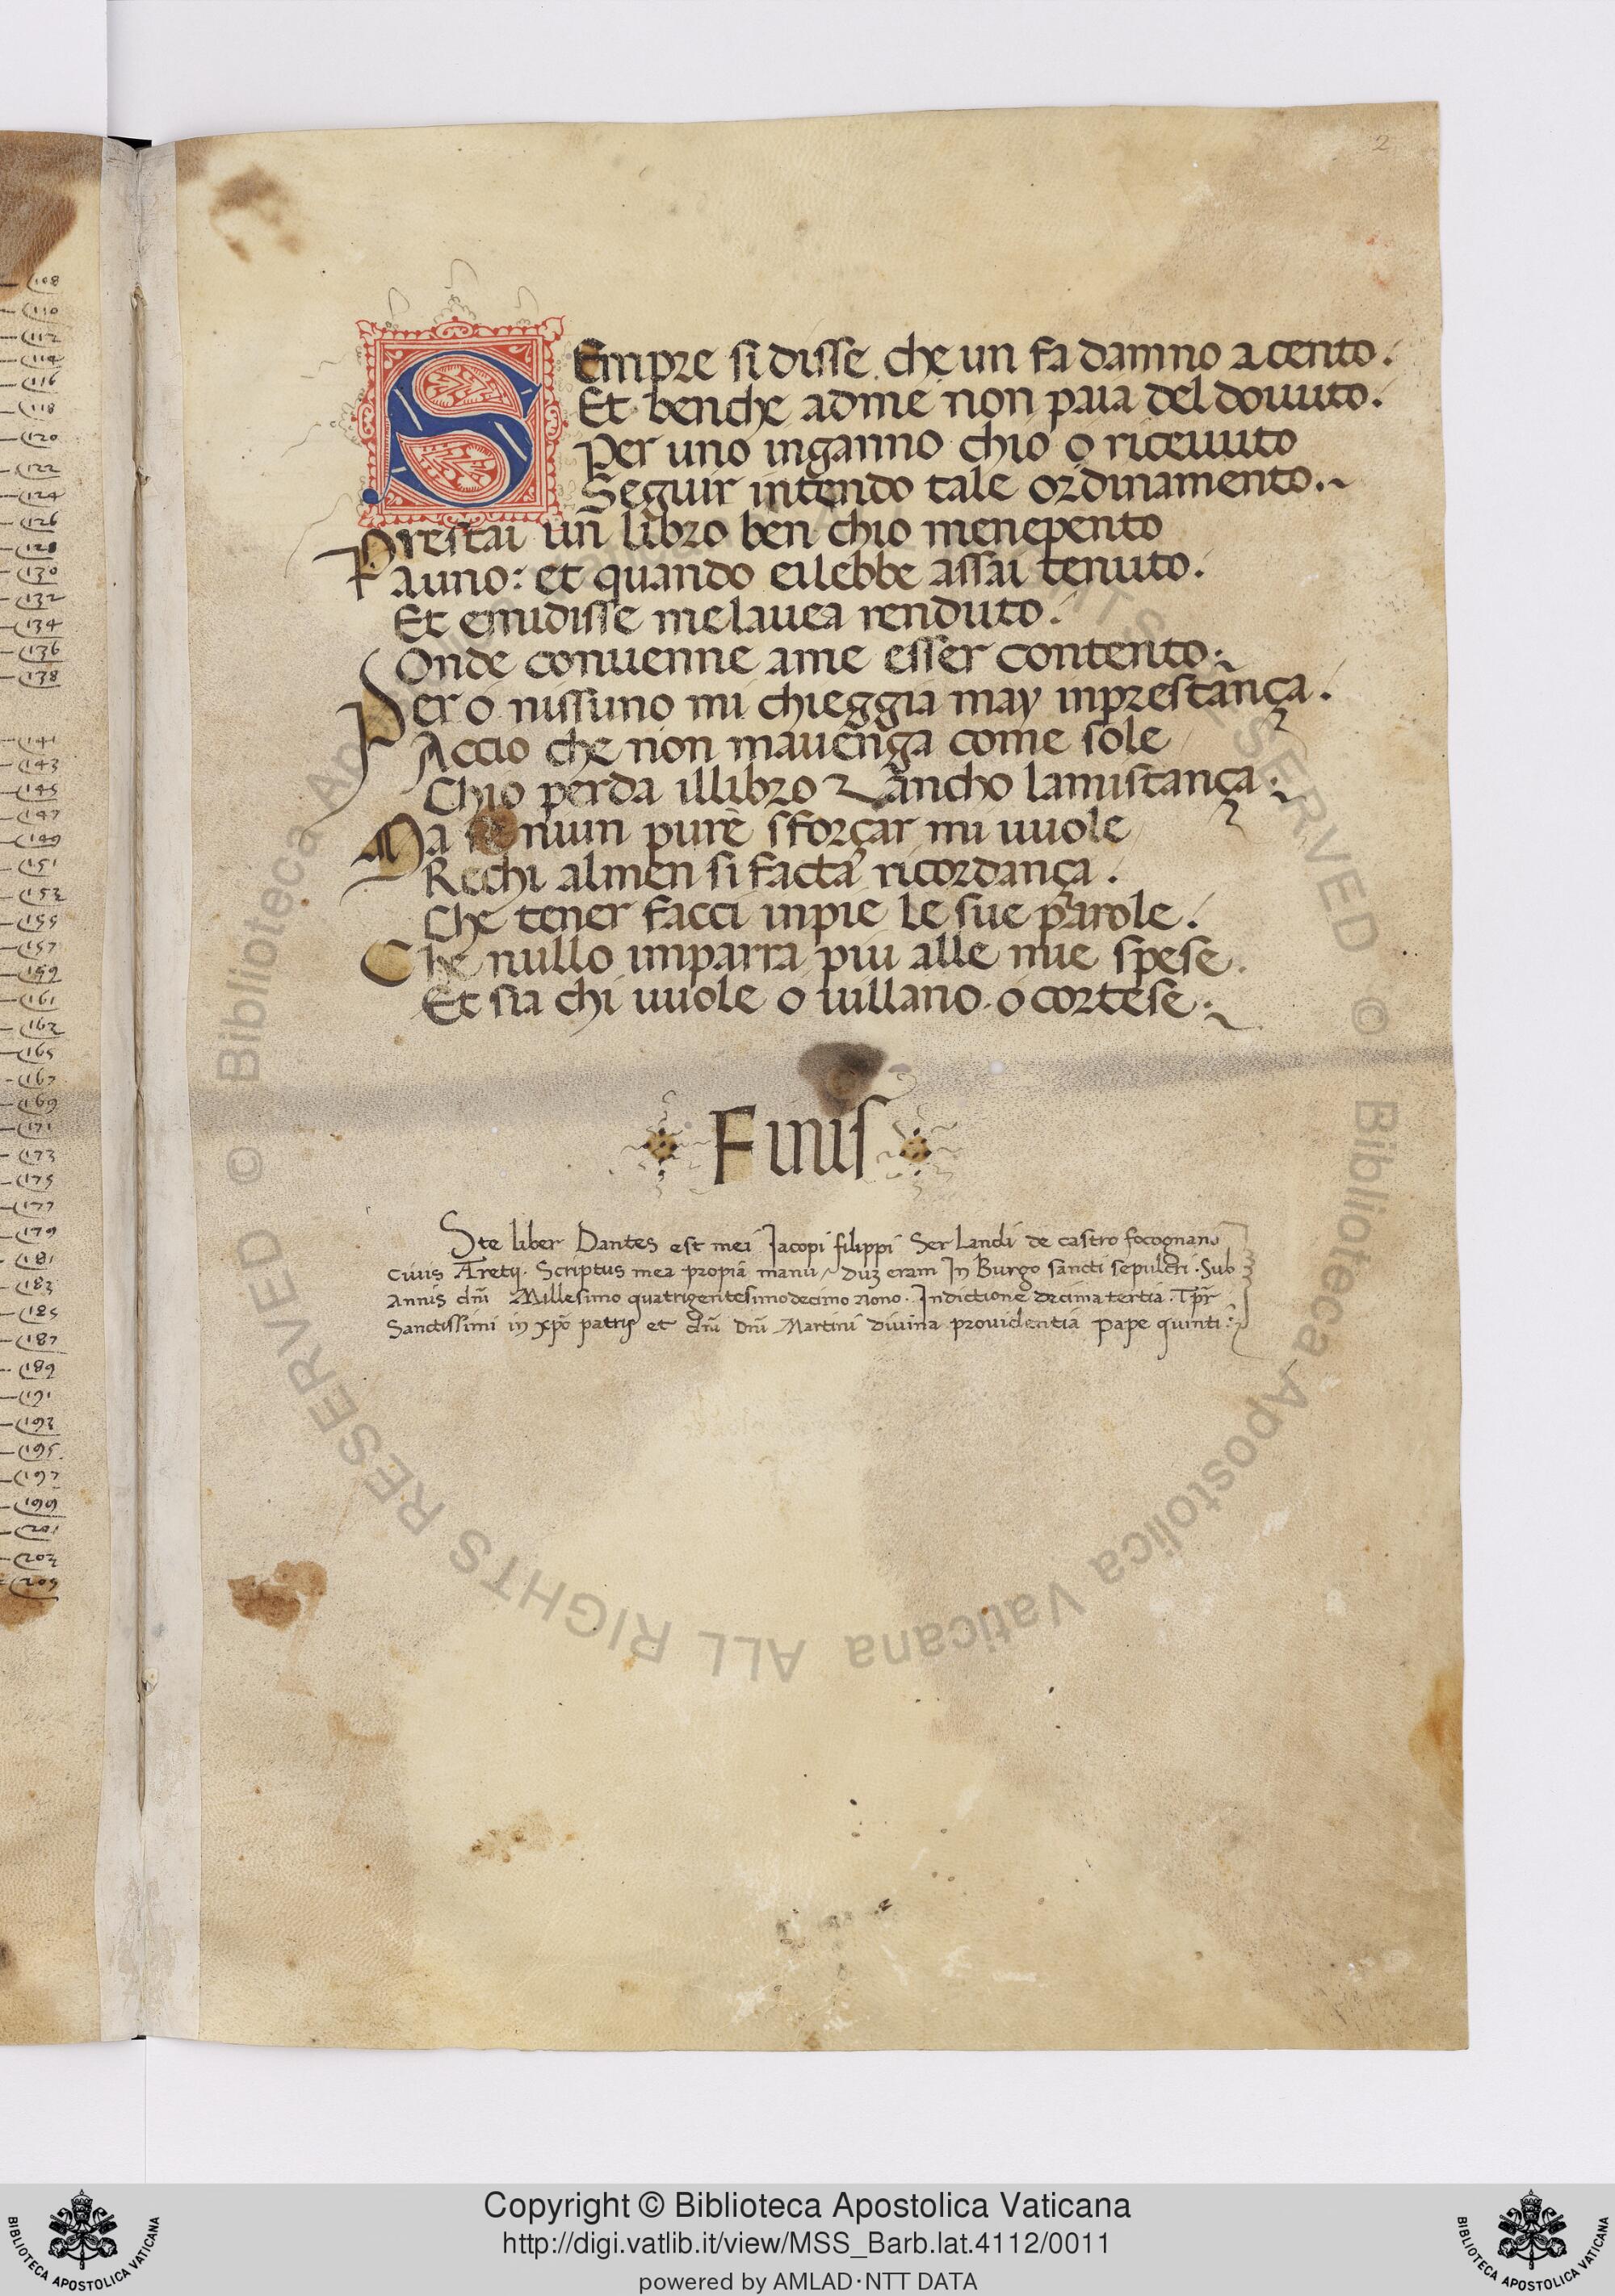 108
110
112
114
116
118
120
122
124
126
128
130
132
134
136
138
141
143
145
147
149
151
153
155
157
159
161
162
165
167
169
171
173
175
177
179
181
183
185
187
189
191
193
195
197
199
201
203
205
2
SEmpre si disse che un fa damno a cento.
Et benche adme non paia del douuto.
Per uno inganno chio o riceuuto
Seguir intendo tale ordinamento.
Prestai un libro ben chio menepento
auno: et quando eilebbe assai tenuto.
Et emidisse melauea renduto.
Onde conuenne ame esser contento
Pero nissuno mi chieggia may inprestança.
Accio che non mauenga come sole
Chio perda illibro & ancho lamistança
Ma se nium pure sforçar mi uuole
Rechi almen si facta ricordança.
Che tener facci inpie le sue parole.
Che nullo imparra piu alle mie spese.
Et sia chi uuole o uillano o cortese
Finis
Ste liber Dantes est mei Jacopi filippi Ser Landi de castro focognano
Ciuis Aretij. Scriptus mea propia manu duz eram In Burgo sancti sepulcri. Sub
Annis dñi Millesimo quatrigentesimodecimo nono. Indictione decima tertia. Tpr̄
Sanctissimi in xpō patris et dñi Dñi Martini diuina prouidentia Pape quinti
© Biblioteca Apostolica Vaticana ALL RIGHTS RESERVED
Copyright © Biblioteca Apostolica Vaticana
http://digi.vatlib.it/view/MSS_Barb.lat.4112/0011
powered by AMLAD·NTT DATA
BIBLIOTECA APOSTOLICA VATICANA
BIBLIOTECA APOSTOLICA VATICANA